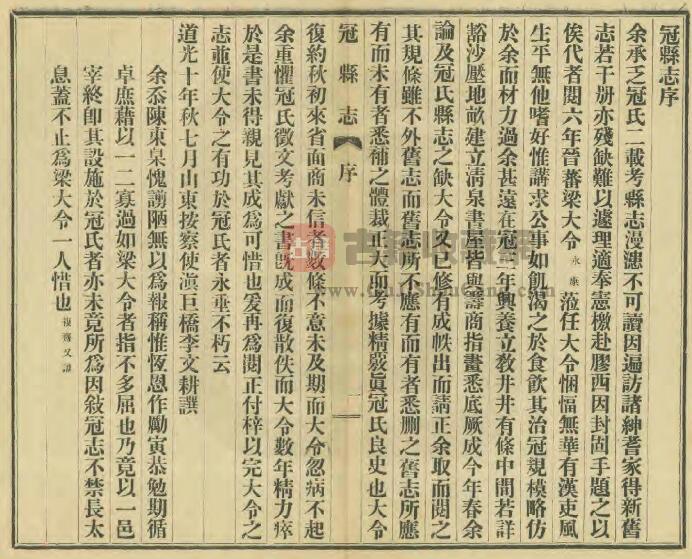 冠縣志序
余承乏冠氏二載考縣志漫漶不可讀因遍訪諸紳耆家得新舊
志若干册亦殘缺難以遽理適奉憲檄赴膠西因封固手題之以
俟代者閱六年晉蕃梁大令永康蒞任大令悃愊無華有漢吏風
生平無他嗜好惟講求公事如飢渴之於食飲其治冠規模略仿
於余而材力過余甚遠在冠三年興養立教井井有條中間若詳
豁沙壓地畝建立清泉書屋皆與籌商指畫悉底厥成今年春余
論及冠氏縣志之缺大令又已修有成帙出而請正余取而閱之
其規條雖不外舊志而舊志所不應有而有者悉删之舊志所應
有而未有者悉補之體裁正大而考據精覈眞冠氏良史也大令
冠縣志
序
一
復約秋初來省面商未信者數條不意未及期而大令忽病不起
余重懼冠氏徵文考獻之書旣成而復散佚而大令數年精力瘁
於是書未得親見其成爲可惜也爰再爲閱正付梓以完大令之
志並使大令之有功於冠氏者永垂不朽云
道光十年秋七月山東按察使滇巨橋李文耕譔
余忝陳東臬愧謭陋無以爲報稱惟恆恩作勵寅恭勉期循
卓庶藉以一二寡過如梁大令者指不多屈也乃竟以一邑
宰終卽其設施於冠氏者亦未竟所爲因敍冠志不禁長太
息蓋不止爲梁大令一人惜也複齋又識
古籍收藏網